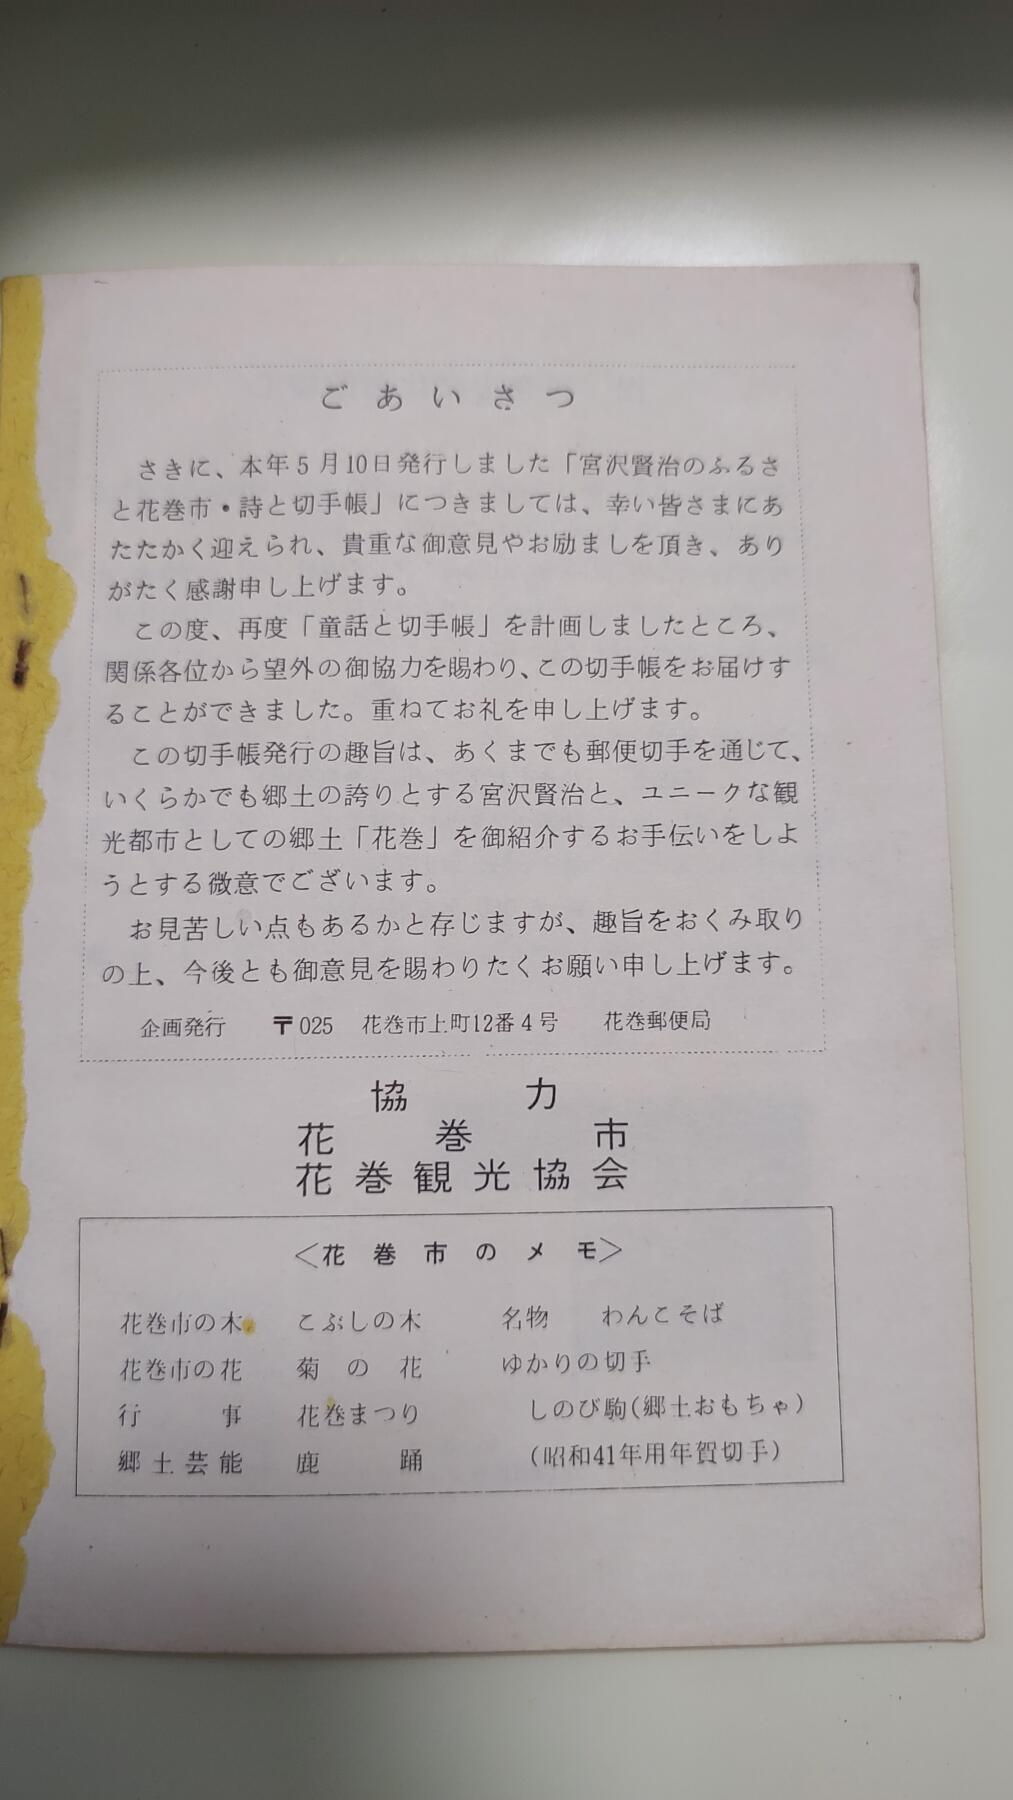 ごあいさつ
さきに、本年5月10日発行しました「宮沢賢治のふるさ
と花巻市・詩と切手帳」につきましては、幸い皆さまにあ
たたかく迎えられ、貴重な御意見やお励ましを頂き、あり
がたく感謝申し上げます。
この度、再度「童話と切手帳」を計画しましたところ、
関係各位から望外の御協力を賜わり、この切手帳をお届けす
ることができました。重ねてお礼を申し上げます。
この切手帳発行の趣旨は、あくまでも郵便切手を通じて、
いくらかでも郷土の誇りとする宮沢賢治と、ユニークな観
光都市としての郷土「花巻」を御紹介するお手伝いをしよ
うとする微意でございます。
お見苦しい点もあるかと存じますが、趣旨をおくみ取り
の上、今後とも御意見を賜わりたくお願い申し上げます。
企画発行 〒025 花巻市上町12番4号 花巻郵便局
協力
花巻市
花巻観光協会
<花巻市のメモ>
花巻市の木 こぶしの木 名物 わんこそば
花巻市の花 菊の花 ゆかりの切手
行事 花巻まつり しのび駒(郷土おもちゃ)
郷土芸能 鹿踊 (昭和41年用年賀切手)